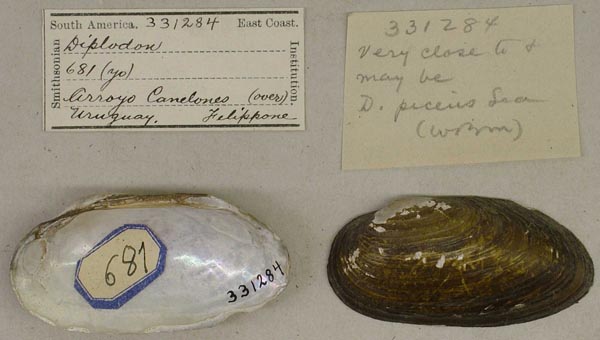 South America. 331284 East Coast.
Smithsonian
Diplodon
681 (yo)
Arroyo Canelones (over)
Uruguay. Felippone
Institution.
331284
Very close to &
may be
D. piceus Lea
(WBM)
681
331284